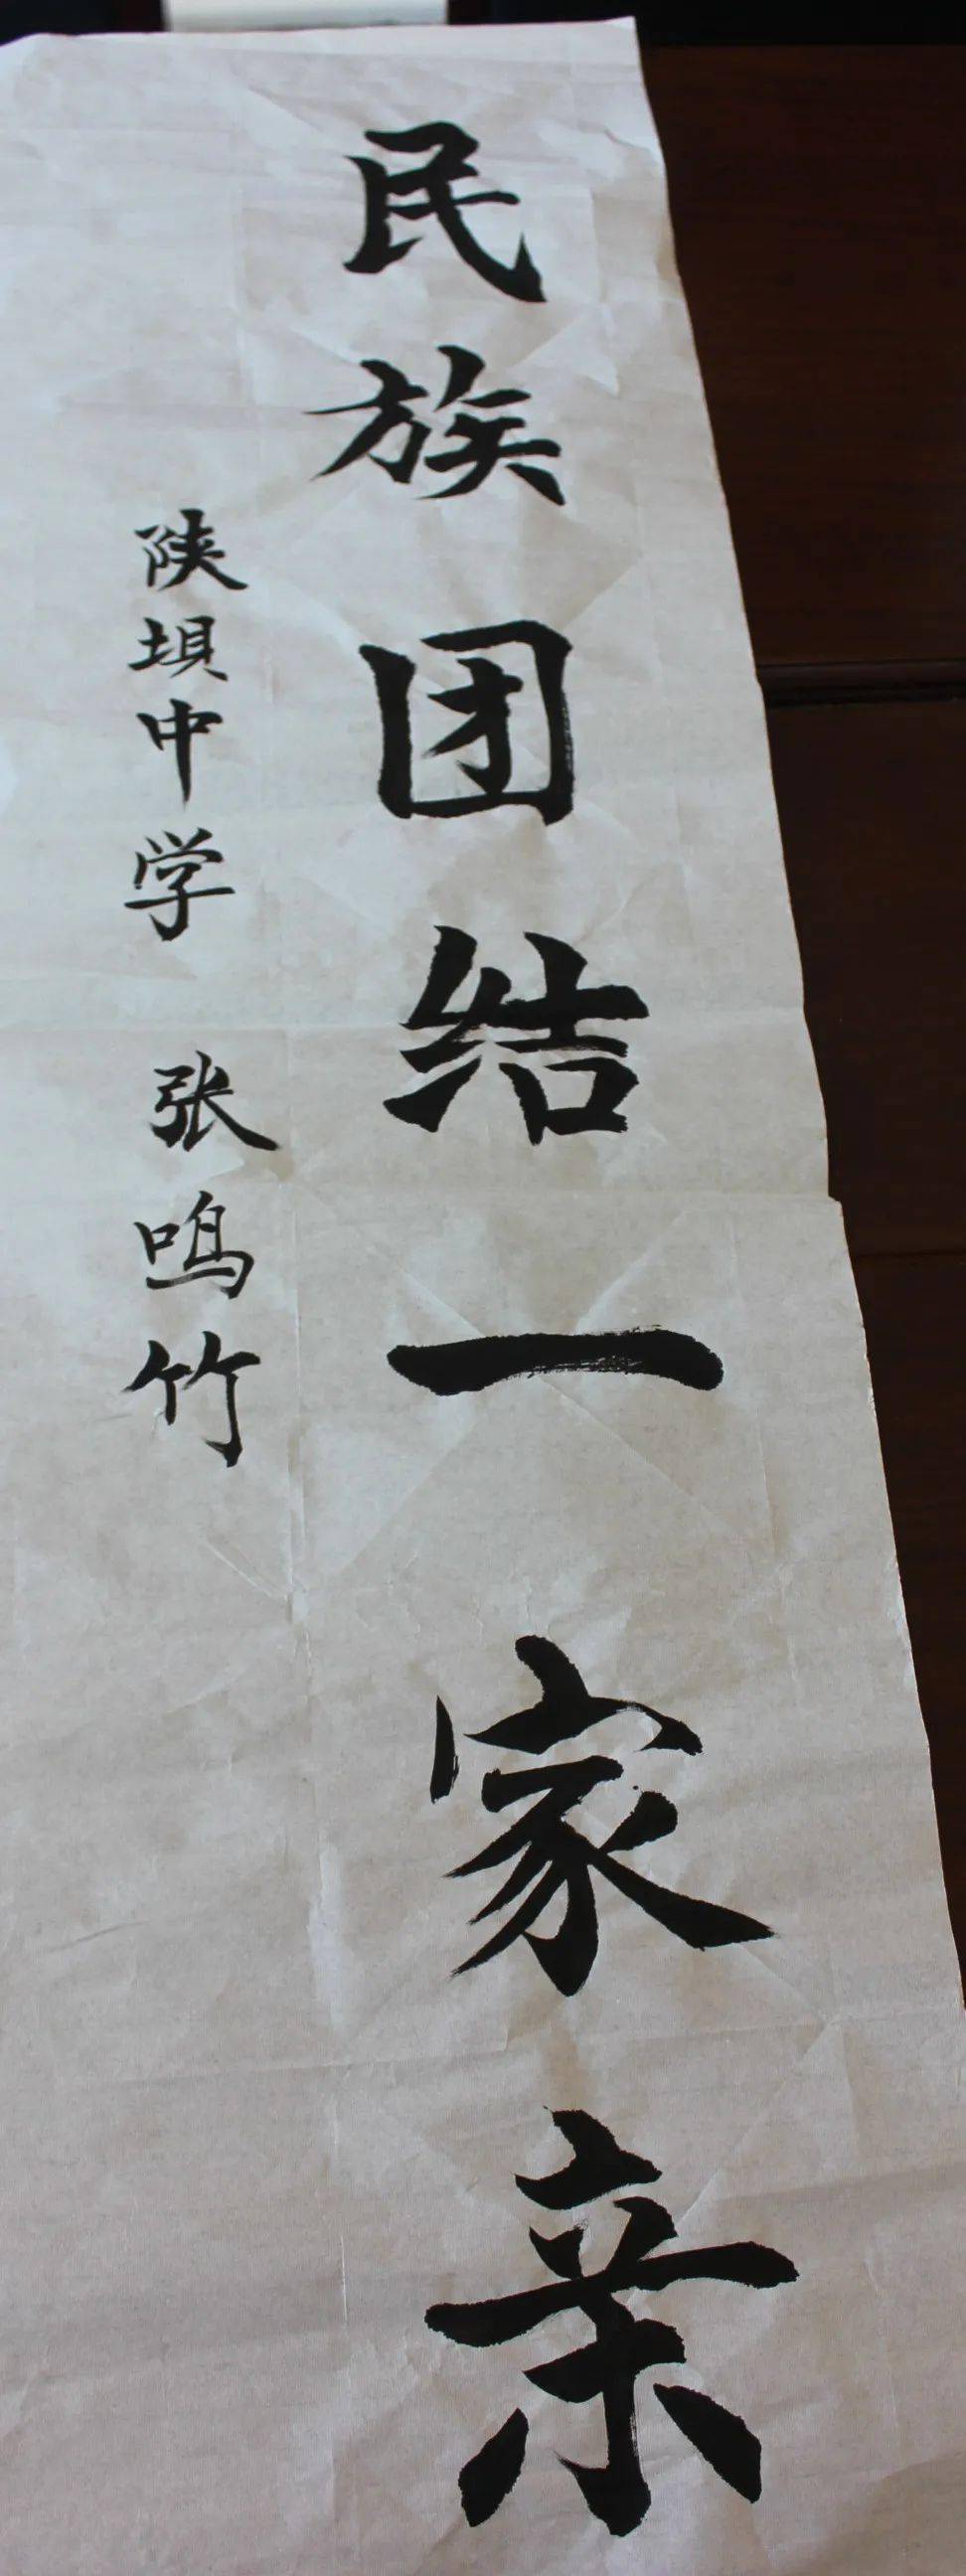 民族团结一家亲
陕坝中学 张鸣竹